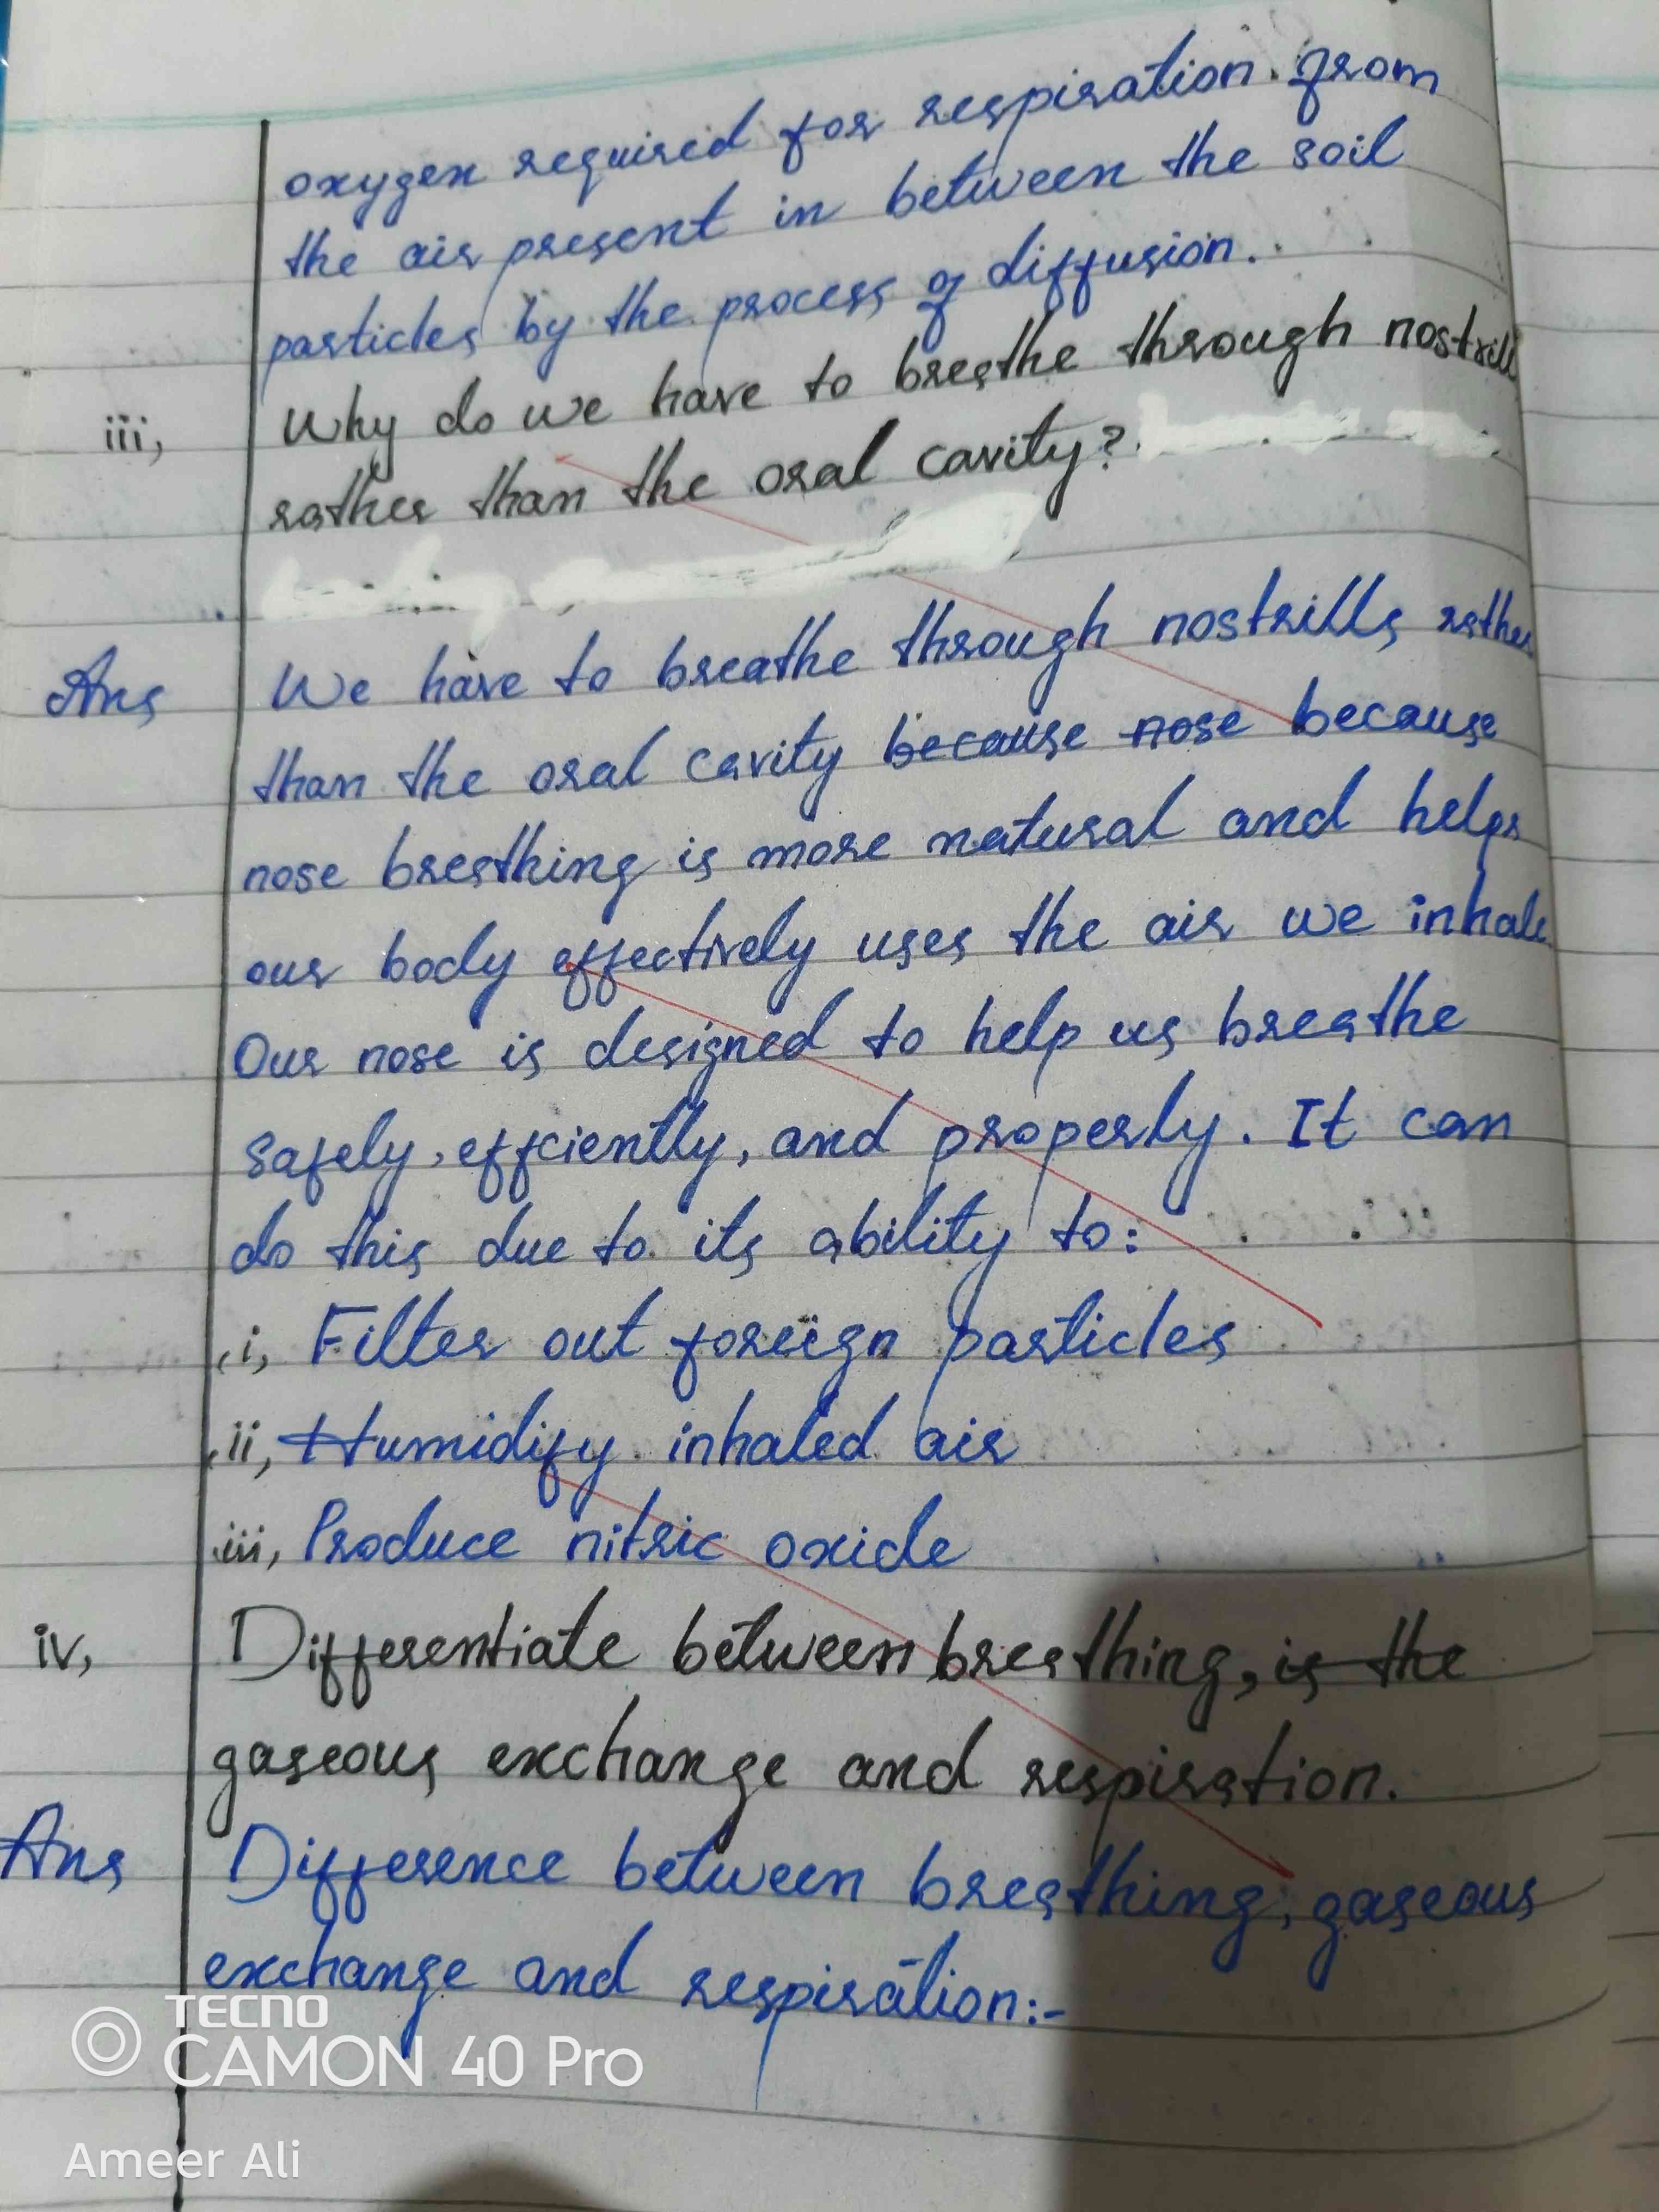 oxygen required for respiration from
the air present in between the soil
particles by the process of diffusion.
iii, Why do we have to breathe through nostrills
rather than the oral cavity?
Ans We have to breathe through nostrills rather
than the oral cavity because nose because
nose breathing is more natural and helps
our body effectively uses the air we inhale
Our nose is designed to help us breathe
safely, effciently, and properly. It can
do this due to its ability to:
i, Filter out foreign particles
ii, Humidify inhaled air
iii, Produce nitric oxide
iv, Differentiate between breathing, is the
gaseous exchange and respiration.
Ans Difference between breathing, gaseous
exchange and respiration:-
TECNO
CAMON 40 Pro
Ameer Ali